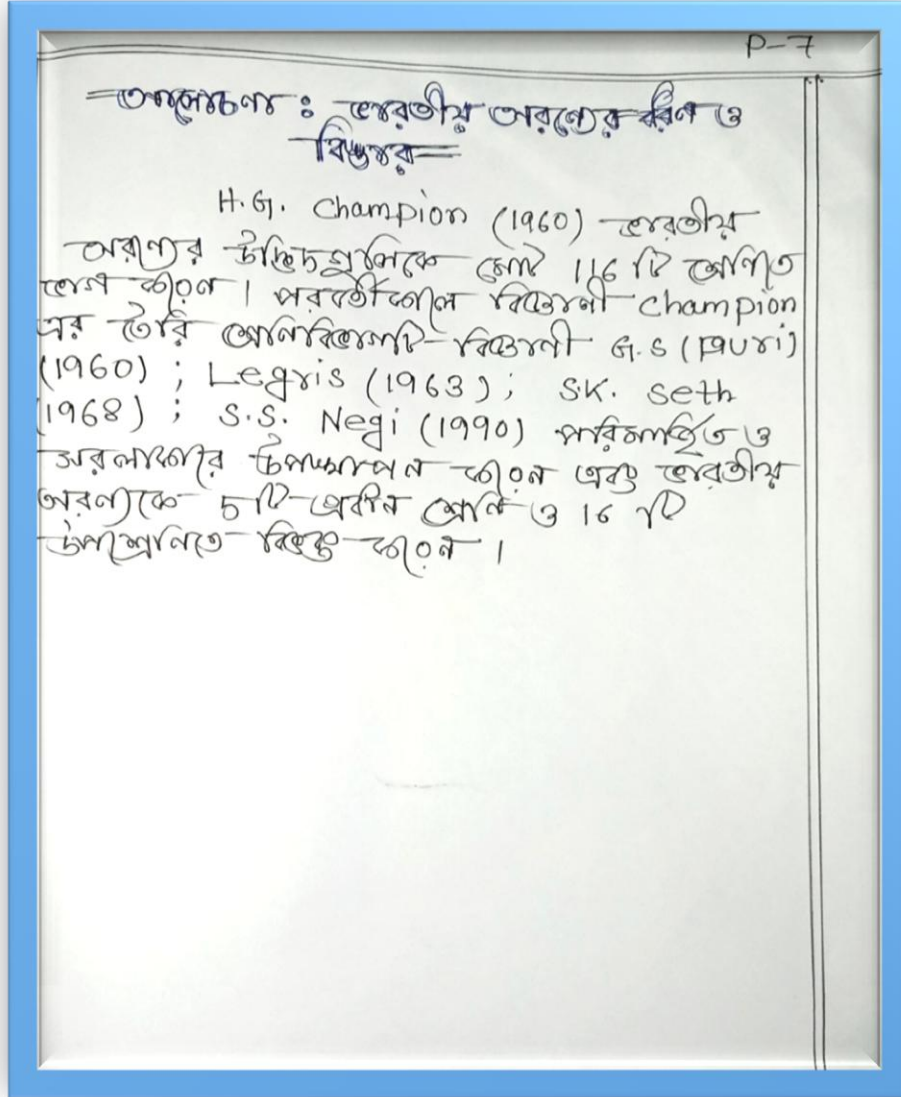 P-7
আলোচনা : ভারতীয় অরণ্যের ধরণ ও
বিস্তার
H.G. Champion (1960) ভারতীয়
অরণ্যের উদ্ভিদগুলিকে মোট 116 টি শ্রেণিতে
ভাগ করেন । পরবর্তীকালে বিজ্ঞানী Champion
এর তৈরি শ্রেণিবিভাগটি বিজ্ঞানী G.S (Puri)
(1960) ; Legris (1963) ; S.K. Seth
(1968) ; S.S. Negi (1990) পরিমার্জিত ও
সরলাকারে উপস্থাপন করেন এবং ভারতীয়
অরণ্যকে 5টি প্রধান শ্রেণি ও 16 টি
উপশ্রেণিতে বিভক্ত করেন ।